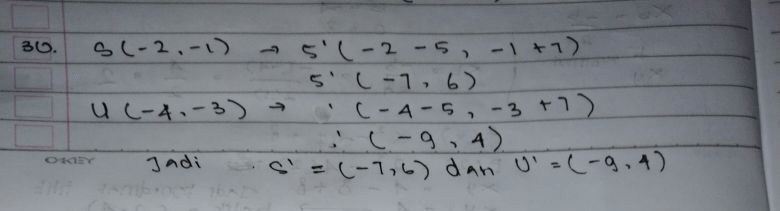 30. S(-2,-1) → S'(-2-5, -1+7)
S' (-7, 6)
U (-4,-3) → ' (-4-5, -3+7)
∴ (-9, 4)
OKEY Jadi S' = (-7,6) dan U' = (-9,4)